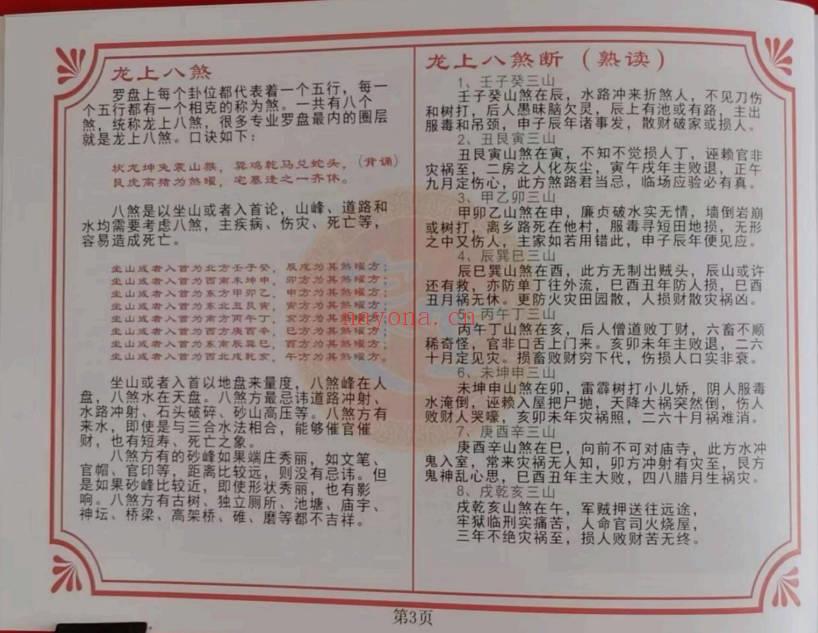 龙上八煞
罗盘上每个卦位都代表着一个五行，每一
个五行都有一个相克的称为煞。一共有八个
煞，统称龙上八煞，很多专业罗盘最内的圈层
就是龙上八煞。口诀如下：
坎龙坤兔震山猴，巽鸡乾马兑蛇头，（背诵）
艮虎离猪为煞曜，宅墓逢之一齐休。
八煞是以坐山或者入首论，山峰、道路和
水均需要考虑八煞，主疾病、伤灾、死亡等，
容易造成死亡。
坐山或者入首为北方壬子癸，辰戌方为其煞曜方；
坐山或者入首为西南未坤申，卯方为其煞曜方；
坐山或者入首为东方甲卯乙，申方为其煞曜方；
坐山或者入首为东北丑艮寅，寅方为其煞曜方；
坐山或者入首为南方丙午丁，亥方为其煞曜方；
坐山或者入首为西方庚酉辛，巳方为其煞曜方；
坐山或者入首为东南辰巽巳，酉方为其煞曜方；
坐山或者入首为西北戌乾亥，午方为其煞曜方。
坐山或者入首以地盘来量度，八煞峰在人
盘，八煞水在天盘。八煞方最忌讳道路冲射、
水路冲射、石头破碎、砂山高压等。八煞方有
来水，即使是与三合水法相合，能够催官催
财，也有短寿、死亡之象。
八煞方有的砂峰如果端庄秀丽，如文笔、
官帽、官印等，距离比较远，则没有忌讳。但
是如果砂峰比较近，即使形状秀丽，也有影
响。八煞方有古树、独立厕所、池塘、庙宇、
神坛、桥梁、高架桥、碓、磨等都不吉祥。
龙上八煞断（熟读）
1、壬子癸三山
壬子癸山煞在辰，水路冲来折煞人，不见刀伤
和树打，后人愚昧脑欠灵，辰上有池或有路，主出
服毒和吊颈，申子辰年诸事发，散财破家或损人。
2、丑艮寅三山
丑艮寅山煞在寅，不知不觉损人丁，诬赖官非
灾祸至，二房之人化灰尘，寅午戌年主败退，正午
九月定伤心，此方煞路君当忌，临场应验必有真。
3、甲乙卯三山
甲卯乙山煞在申，廉贞破水实无情，墙倒岩崩
或树打，离乡路死在他村，服毒寻短田地损，无形
之中又伤人，主家如若用错此，申子辰年便见应。
4、辰巽巳三山
辰巳巽山煞在酉，此方无制出贼头，辰山或许
还有救，亦防单丁往外流，巳酉丑年防人损，巳酉
丑月祸无休。更防火灾田园散，人损财散灾祸凶。
5、丙午丁三山
丙午丁山煞在亥，后人僧道败丁财，六畜不顺
稀奇怪，官非口舌上门来。亥卯未年主败退，二六
十月定见灾。损畜败财穷下代，伤损人口实非衰。
6、未坤申三山
未坤申山煞在卯，雷霹树打小儿娇，阴人服毒
水淹倒，诬赖入屋把尸抛，天降大祸突然倒，伤人
败财人哭嚎，亥卯未年灾祸照，二六十月祸难消。
7、庚酉辛三山
庚酉辛山煞在巳，向前不可对庙寺，此方水冲
鬼入室，常来灾祸无人知，卯方冲射有灾至，艮方
鬼神乱心思，巳酉丑年主大败，四八腊月生祸灾。
8、戌乾亥三山
戌乾亥山煞在午，军贼押送往远途，
牢狱临刑实痛苦，人命官司火烧屋，
三年不绝灾祸至，损人败财苦无终。
nayona.cn
第3页